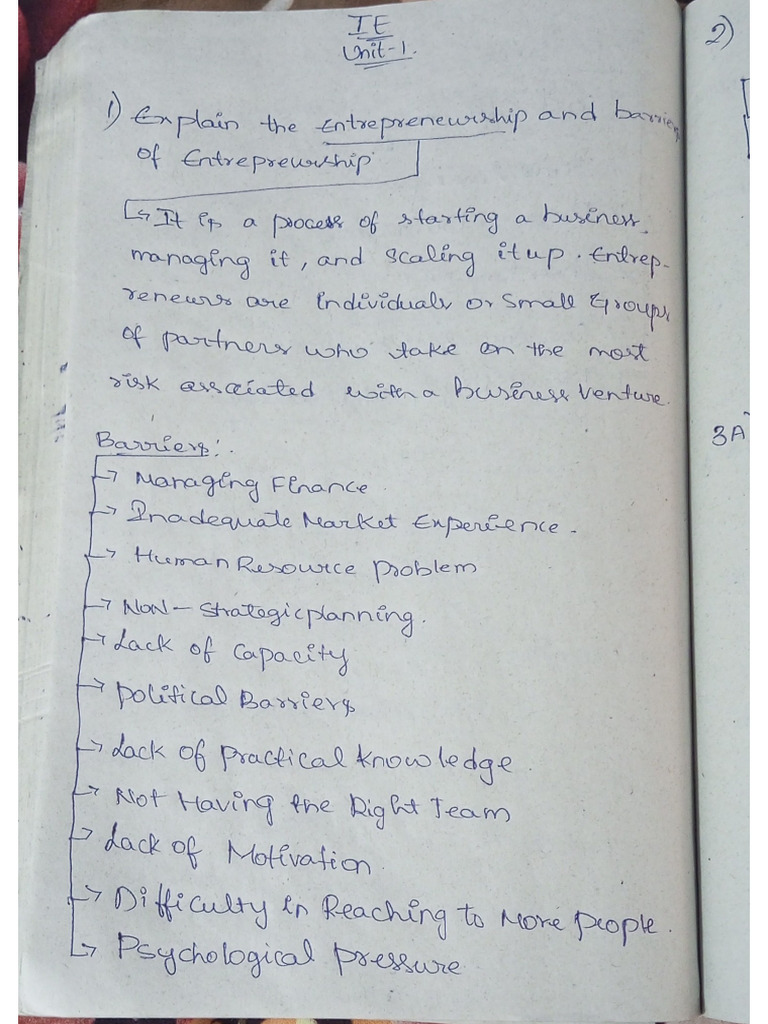 IE
Unit-1.
1) Explain the Entrepreneurship and barriers
of Entrepreurship
It is a process of starting a business,
managing it, and scaling it up. Entrep-
reneurs are individuals or small Groups
of partners who take on the most
risk associated with a business venture.
Barriers:-
→ Managing Finance.
→ Inadequate Market Experience.
→ Human Resource problem
→ NON-strategic planning.
→ Lack of Capacity
→ political Barriers
→ Lack of practical knowledge.
→ Not Having the Right Team
→ Lack of Motivation.
→ Difficulty in Reaching to More people.
→ Psychological pressure
2)
3A